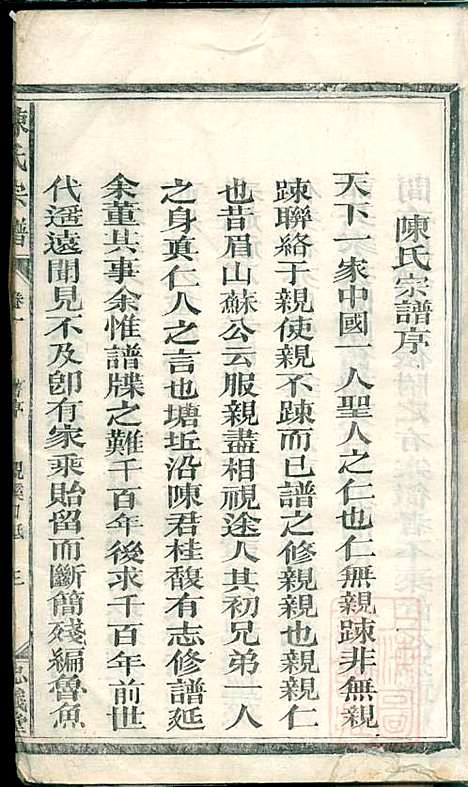 陳氏宗譜序
天下一家中國一人聖人之仁也仁無親踈非無親
踈聯絡于親使親不踈而已譜之修親親也親親仁
也昔眉山蘇公云服親盡相視途人其初兄弟一人
之身真仁人之言也塘坵沿陳君桂馥有志修譜延
余董其事余惟譜牒之難千百年後求千百年前世
代遥遠聞見不及卽有家乘貽留而斷簡殘編魯魚
陳氏宗譜
卷一
三
忠義堂